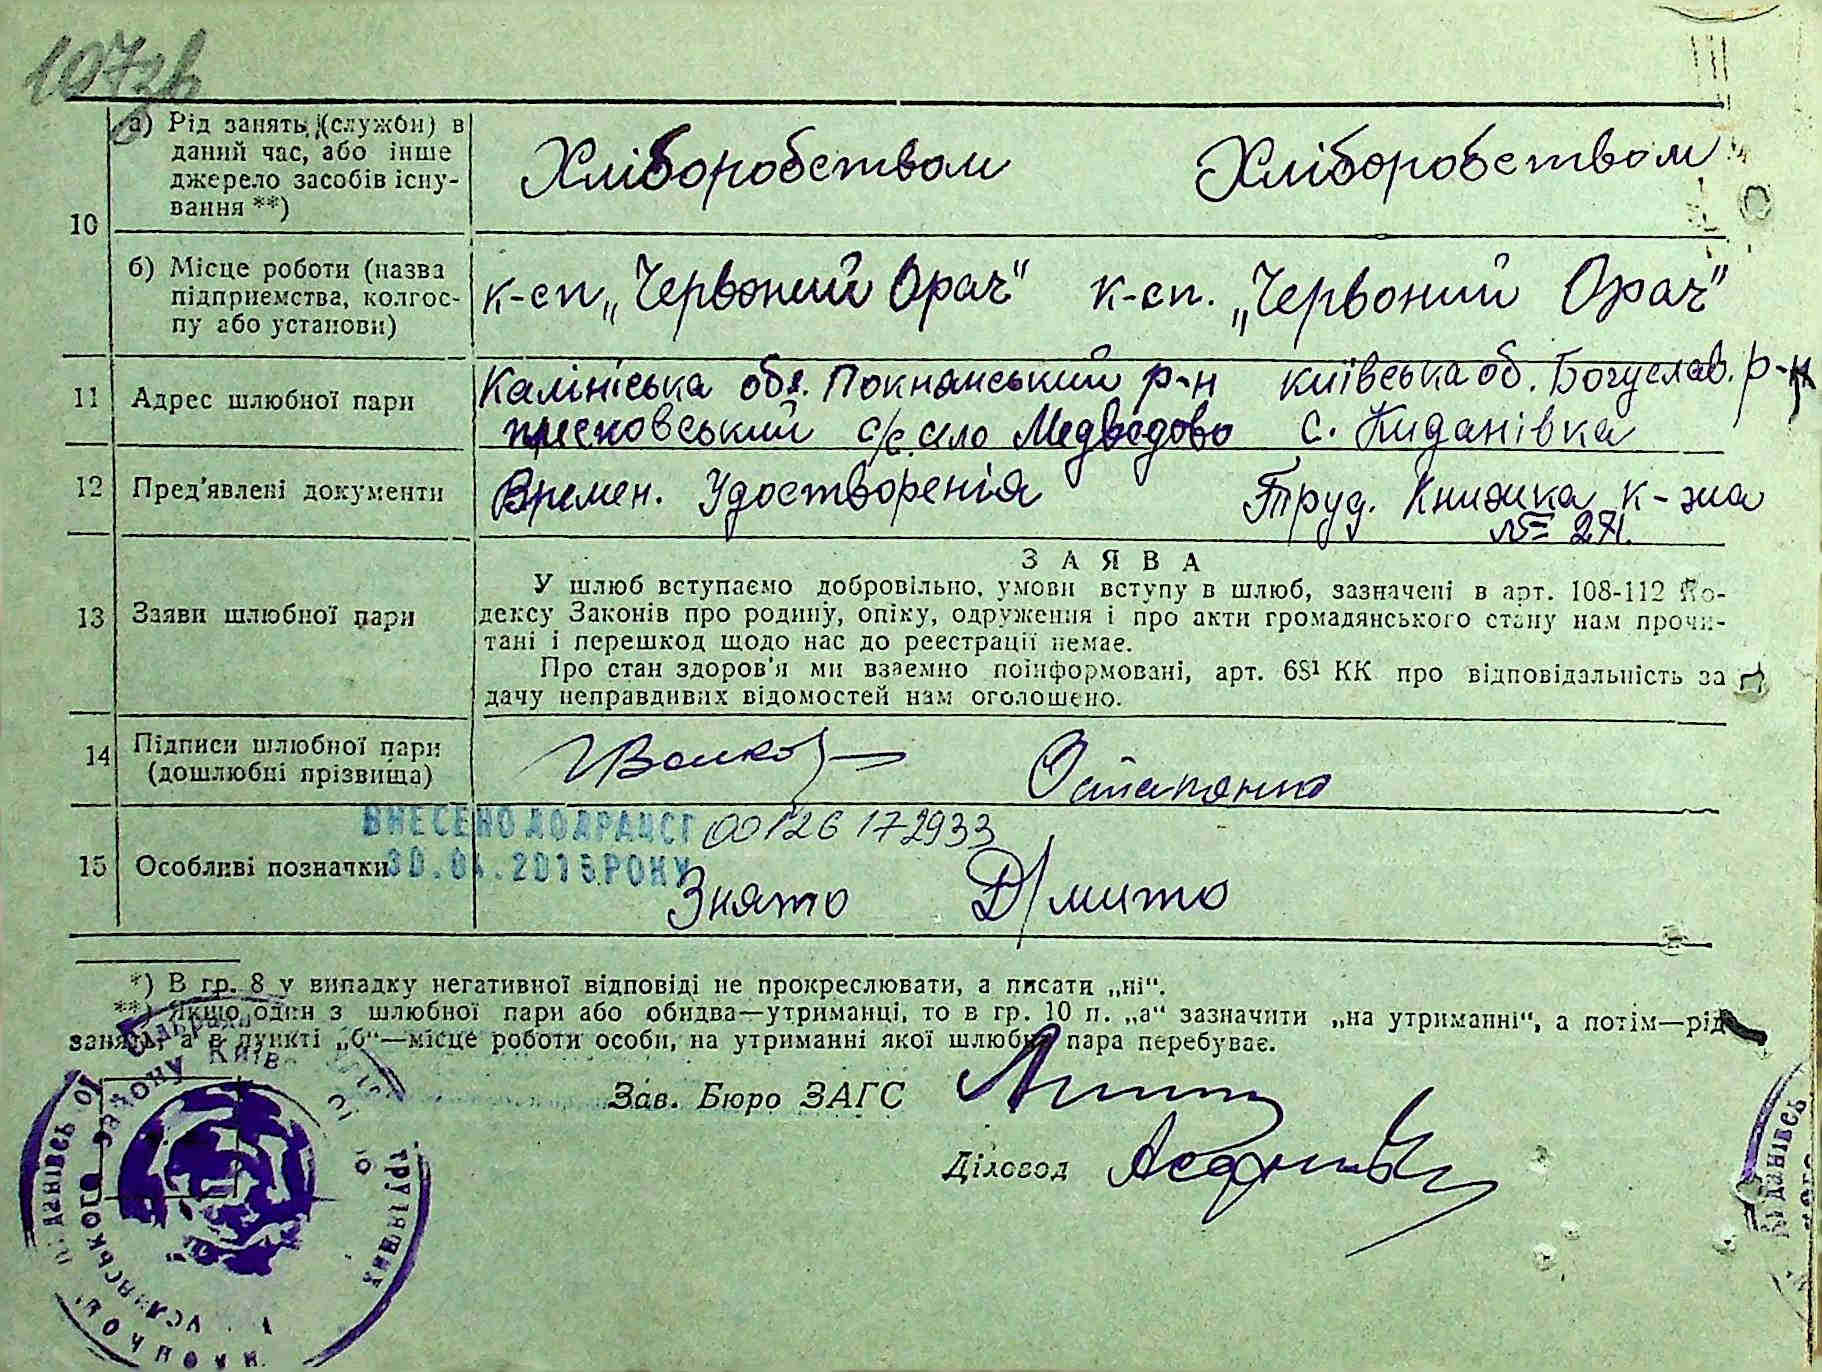 107зв
10
а) Рід занять (служби) в
даний час, або інше
джерело засобів існу-
вання **)
Хліборобством Хліборобством
б) Місце роботи (назва
підприємства, колгос-
пу або установи)
к-сп „Червоний Орач" к-сп. „Червоний Орач"
11 Адрес шлюбної пари
Калініська обл. Покнамський р-н київська об. Богуслав. р-н
с/с село Медведово с. Киданівка
12 Пред'явлені документи
Времен. Удостворенія Труд. Книжка к-зма
№ 271.
13 Заяви шлюбної пари
ЗАЯВА
У шлюб вступаємо добровільно, умови вступу в шлюб, зазначені в арт. 108-112 Ко-
дексу Законів про родину, опіку, одруження і про акти громадянського стану нам прочи-
тані і перешкод щодо нас до реєстрації немає.
Про стан здоров'я ми взаємно поінформовані, арт. 68¹ КК про відповідальність за
дачу неправдивих відомостей нам оголошено.
14 Підписи шлюбної пари
(дошлюбні прізвища)
Остапенко
ВНЕСЕНО ДО ДРАЦСГ 00126172933
30.04.2015 РОКУ
15 Особливі позначки
Знято Д/мито
*) В гр. 8 у випадку негативної відповіді не прокреслювати, а писати „ні".
**) Якщо один з шлюбної пари або обидва—утриманці, то в гр. 10 п. „а" зазначити „на утриманні", а потім—рід
занять, а в пункті „б"—місце роботи особи, на утриманні якої шлюбна пара перебуває.
Зав. Бюро ЗАГС
Діловод